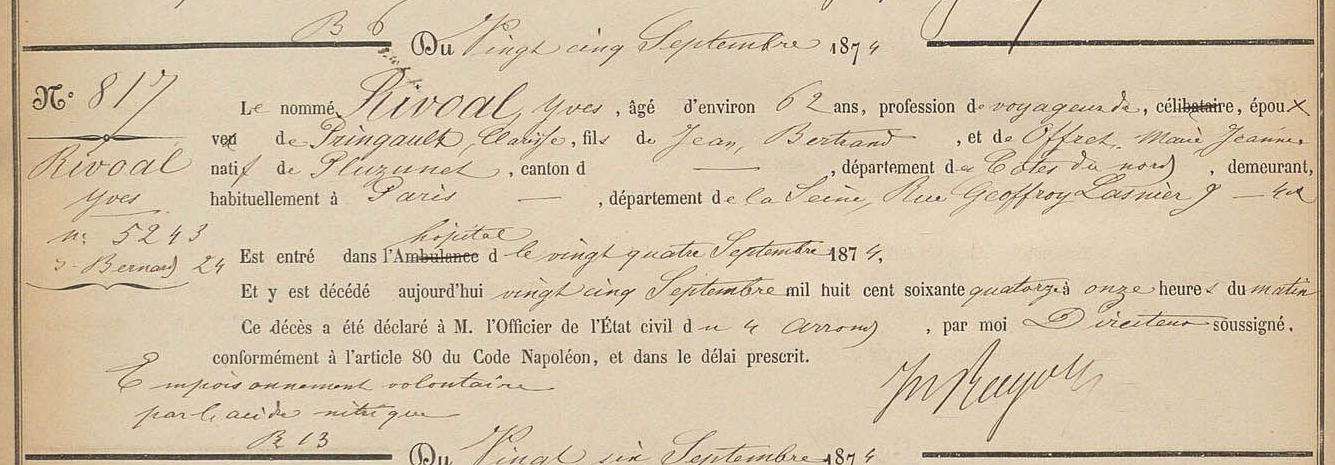 B 6
Du Vingt cinq Septembre 1874
N° 817
Le nommé Rivoal, Yves, âgé d'environ 62 ans, profession de voyageur de, célibataire, époux
veu de Tringault, Clarisse, fils de Jean, Bertrand, et de Offret, Marie Jeanne
Rivoal
Yves
n° 5243
S-Bernard 24
natif de Pluzunet, canton d — , département des Côtes du nord, demeurant,
habituellement à Paris — , département de la Seine, Rue Geoffroy Lasnier 9 — 4e
Est entré dans l'Ambulance hôpital d le vingt quatre Septembre 1874,
Et y est décédé aujourd'hui vingt cinq Septembre mil huit cent soixante quatorze à onze heures du matin
Ce décès a été déclaré à M. l'Officier de l'État civil du 4 arrond, par moi Directeur soussigné,
conformément à l'article 80 du Code Napoléon, et dans le délai prescrit.
Empoisonnement volontaire
par l'acide nitrique
R 13
Du Vingt six Septembre 1874